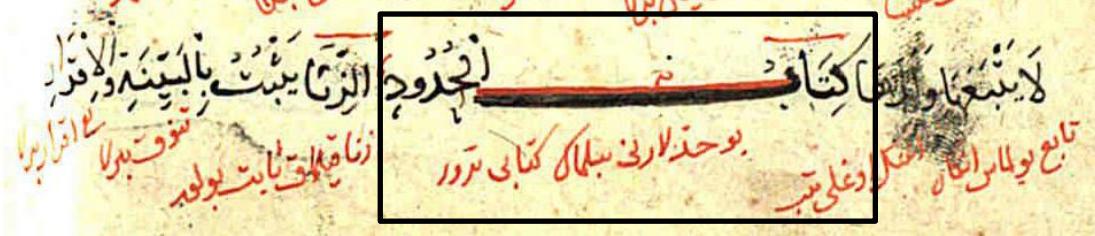 لَا يَتْبَعُهَا وَلَدُهَا كِتَابُ الْحُدُودِ الزِّنَا يَثْبُتُ بِالْبَيِّنَةِ وَالْاِقْرَارِ
تابع بولماس انكا اوغلى بو حدلارنى بيلماك كتابى تورور زنا قيلماق ثابت بولور تنوق بيرلا اقرار بيرلا